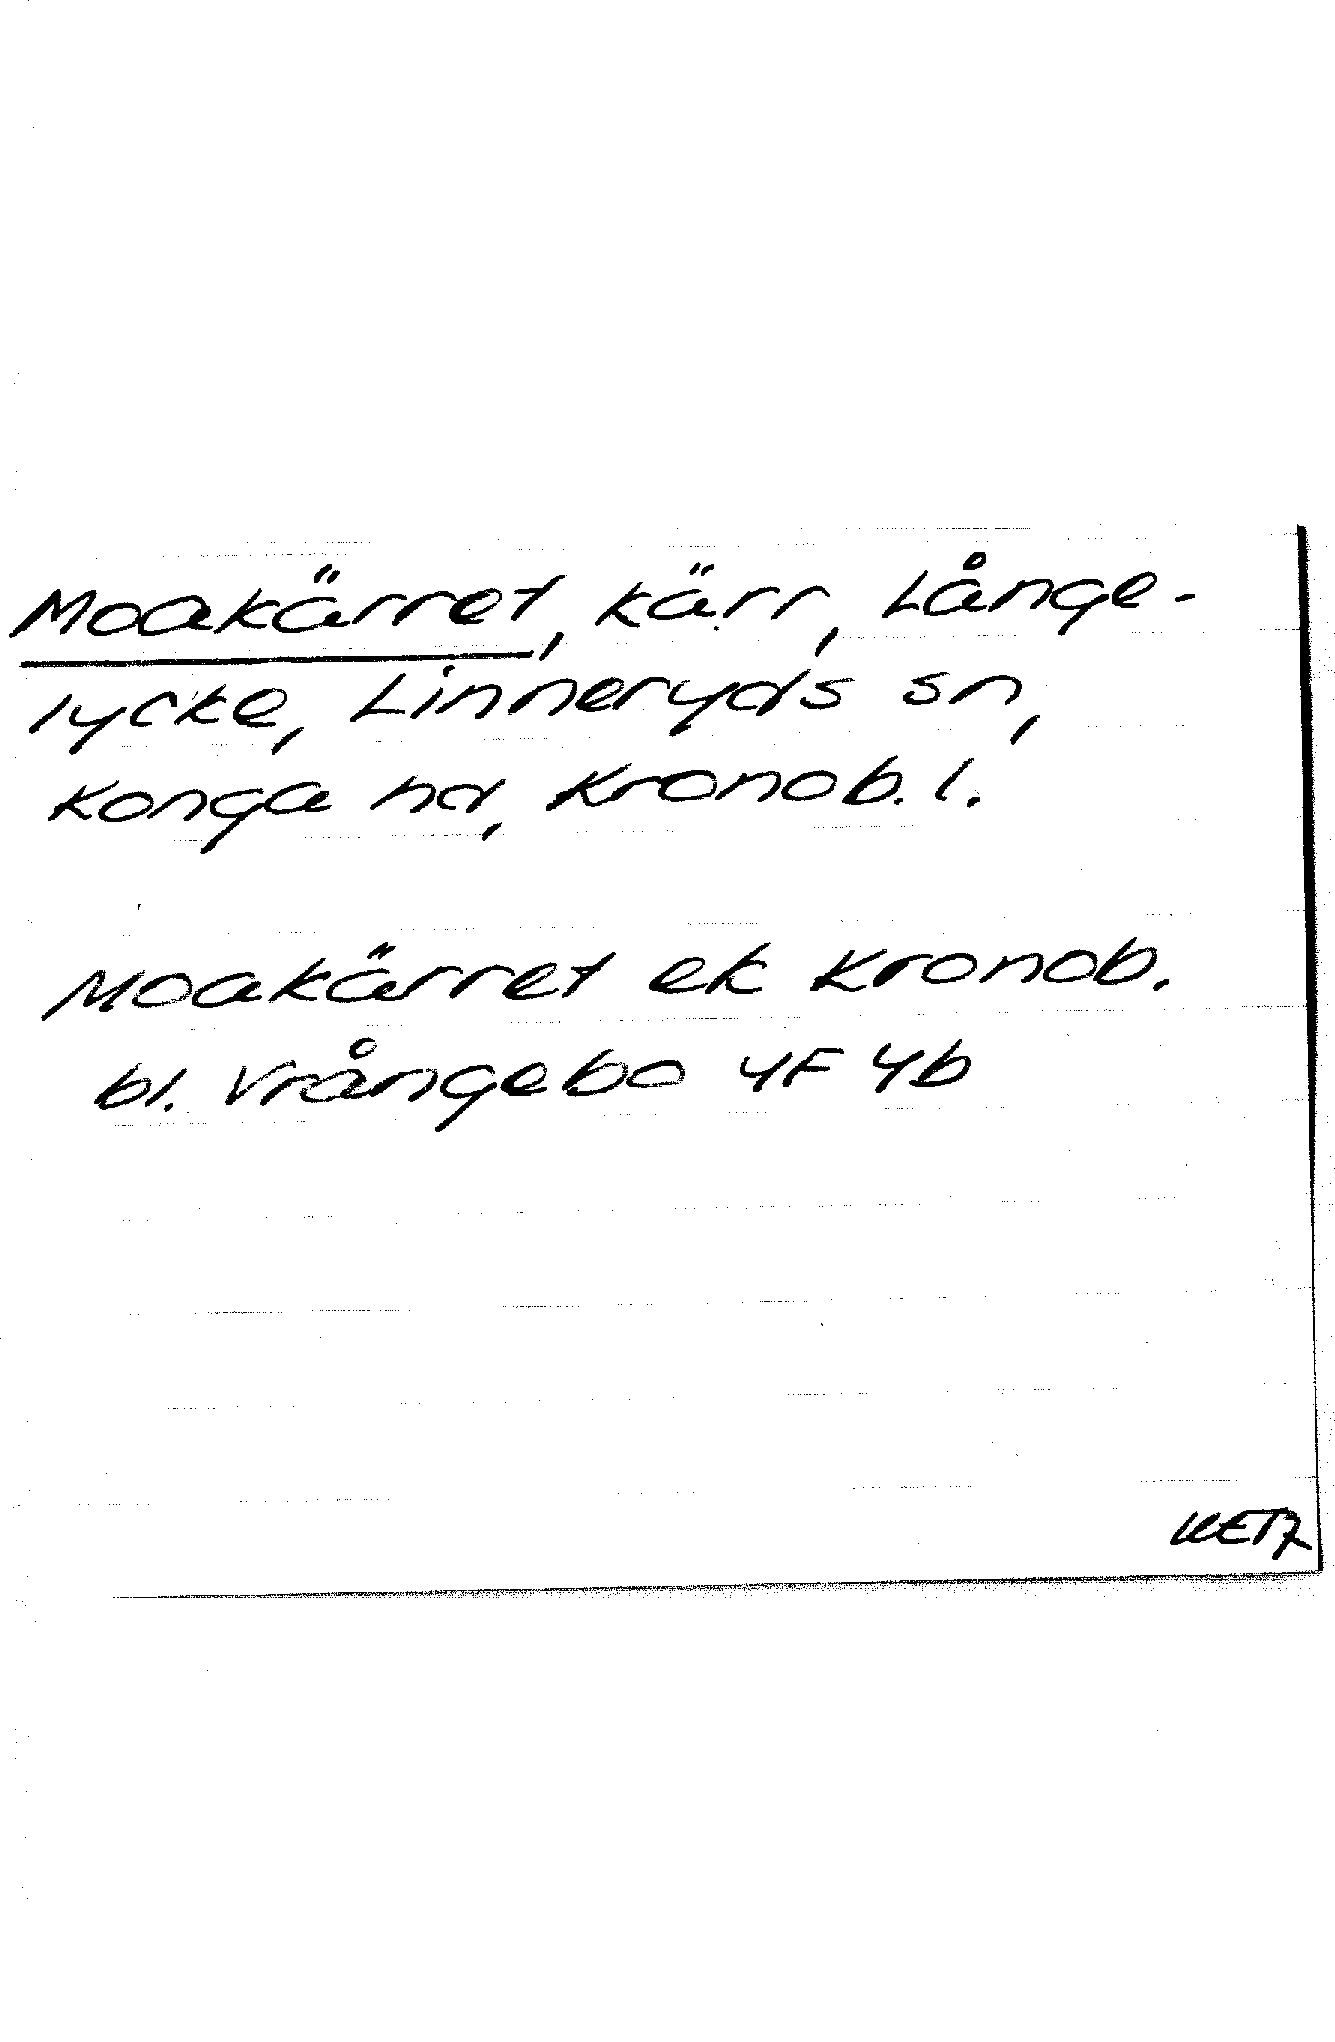 Moakärret, kärr, Långe-
lycke, Linneryds sn,
Konga hd, Kronob. l.
Moakärret ek Kronob.
bl. Vrångebo 4F 4b